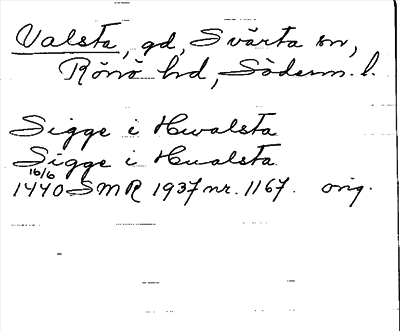 Valsta, gd, Svärta sn,
Rönö hd, Söderm. l.
Sigge i Hwalsta
Sigge i Hualsta
16/6
1440 SMR 1937 nr. 1167. orig.